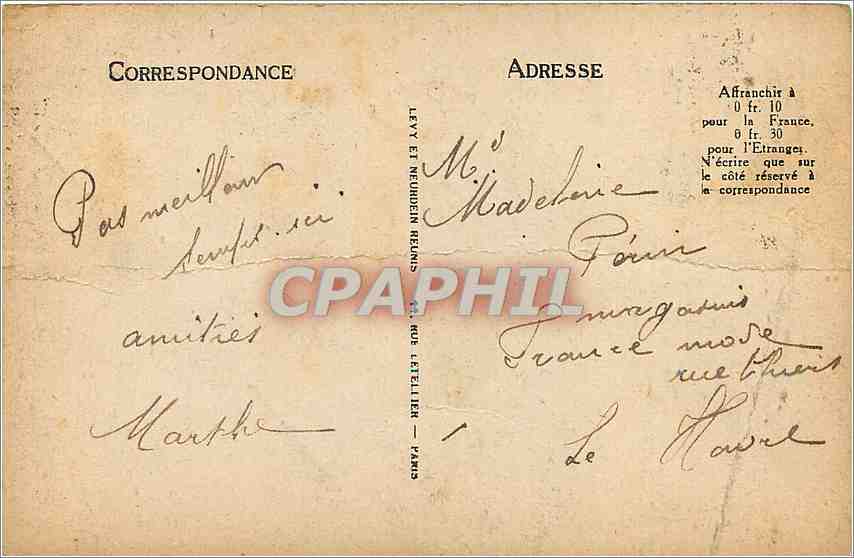 CORRESPONDANCE
Pas meilleur
temps ici
amitiés
Marthe
LEVY ET NEURDEIN REUNIS 44, RUE LETELLIER — PARIS
ADRESSE
Affranchir à
0 fr. 10
pour la France,
0 fr. 30
pour l'Etranger.
N'écrire que sur
le côté réservé à
la correspondance
Madeleine
Périn
France mode
rue thiers
Le Havre
CPAPHIL